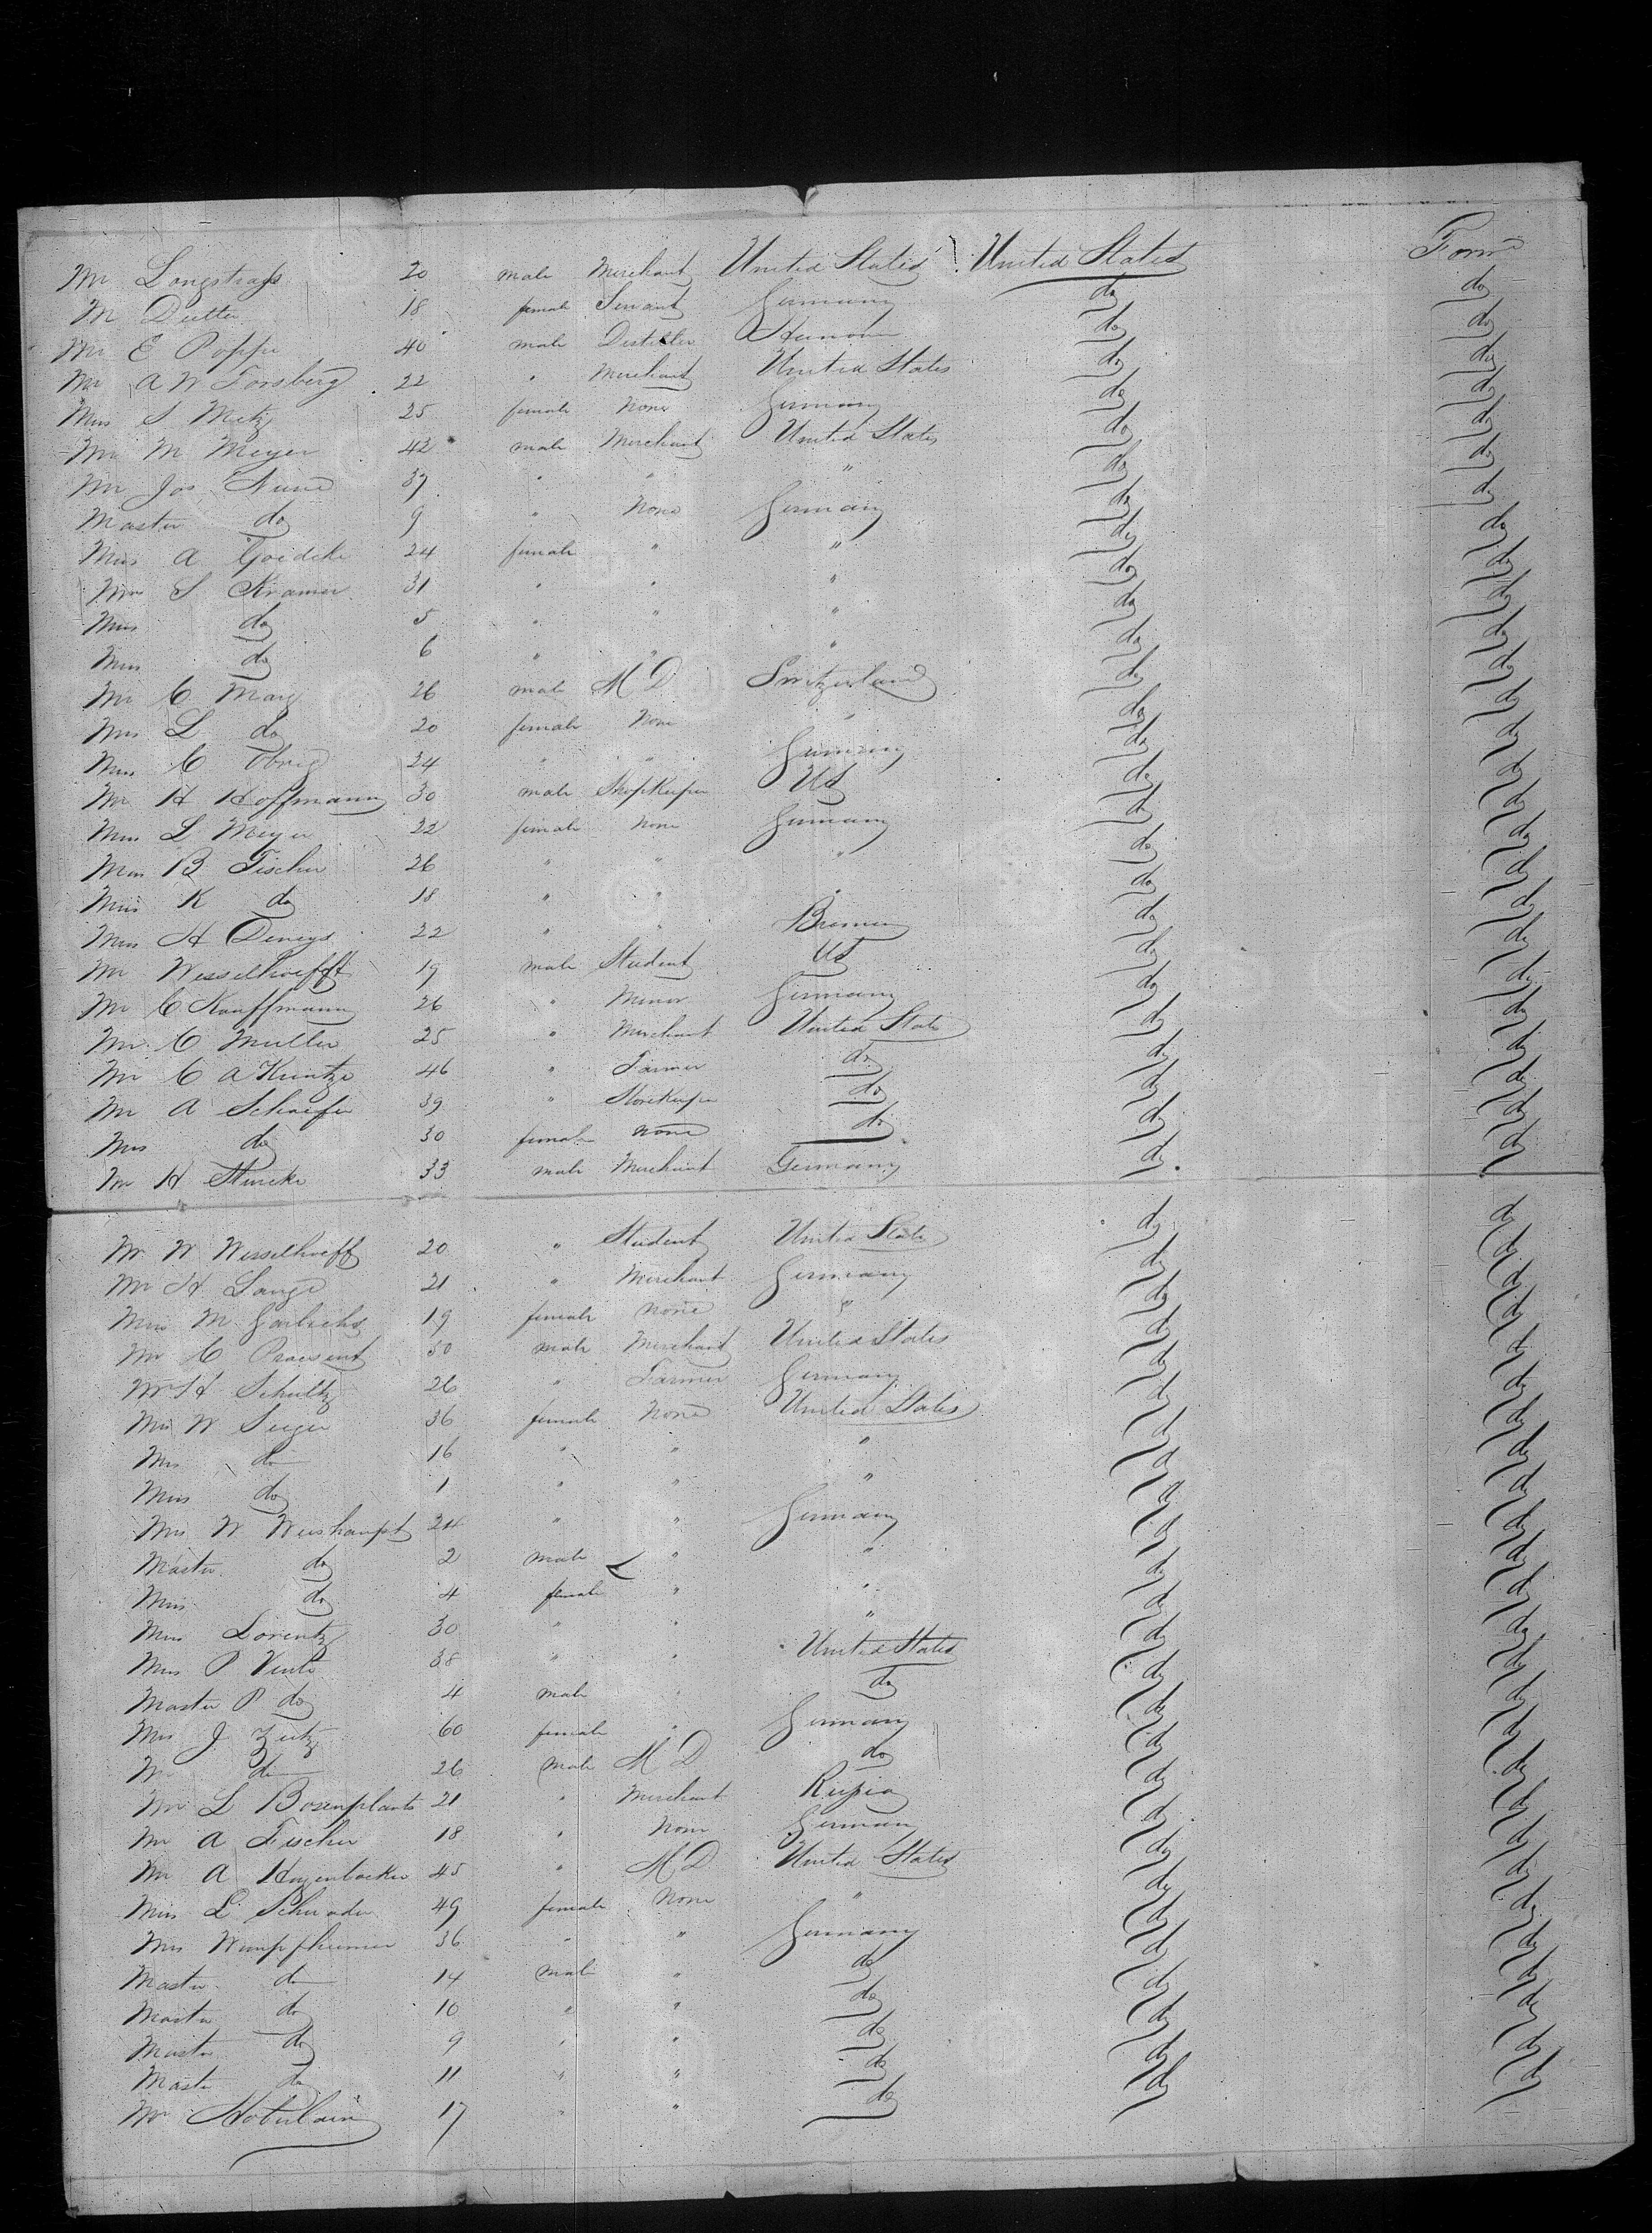 Mr Longstrass 20 male Merchant United States United States Forw
M Dutter 18 female Servant Germany do do
Mr E Poppe 40 male Distiller Hanover do do
Mr A W Forsberg 22 " Merchant United States do do
Miss S Metz 25 female None Germany do do
Mr M Meyer 42 male Merchant United States do do
Mr Jos 37 " " " do do
Master do 9 " None Germany do do
Miss A Goedeke 24 female " " do do
Mrs S Kramer 31 " " " do do
Miss do 5 " " " do do
Miss do 6 " " " do do
Mr C Marx 26 male M D Switzerland do do
Mrs L do 20 female None " do do
Miss C Obrig 24 " " Germany do do
Mr H Hoffmann 30 male Shopkeeper US do do
Miss L Meyer 22 female None Germany do do
Miss B Fischer 26 " " " do do
Miss K do 18 " " " do do
Miss H Deneys 22 " " Bremen do do
Mr Wesselhoefft 19 male Student US do do
Mr C Kauffmann 26 " Miner Germany do do
Mr C Muller 25 " Merchant United States do do
Mr C A Kuntze 46 " Farmer do do do
Mr A Schaefer 39 " Storekeeper do do do
Mrs do 30 female none do do do
Mr H Sturcke 33 male Merchant Germany do do
Mr W Wesselhoeft 20 " Student United States do do
Mr H Lange 21 " Merchant Germany do do
Miss M 19 female none " do do
Mr C Praesent 50 male Merchant United States do do
Mr H Schultz 26 " Farmer Germany do do
Mrs W Seeger 36 female None United States do do
Miss do 16 " " " do do
Miss do 1 " " " do do
Mrs W Weishaupt 24 " " Germany do do
Master do 2 male " " do do
Miss do 4 female " " do do
Miss Lorentz 30 " " " do do
Mrs P 38 " " United States do do
Master P do 4 male " do do do
Mrs J Zeitz 60 female " Germany do do
Mr do 26 male M D do do do
Mr L Bosenplants 21 " Merchant Russia do do
Mr A Fischer 18 " None Germany do do
Mr A 45 " M D United States do do
Miss L Schrader 49 female None " do do
Mrs Wimpfheimer 36 " " Germany do do
Master do 14 male " do do do
Master do 10 " " do do do
Master do 9 " " do do do
Master do 11 " " do do do
Mr Haberlain 17 " " do do do